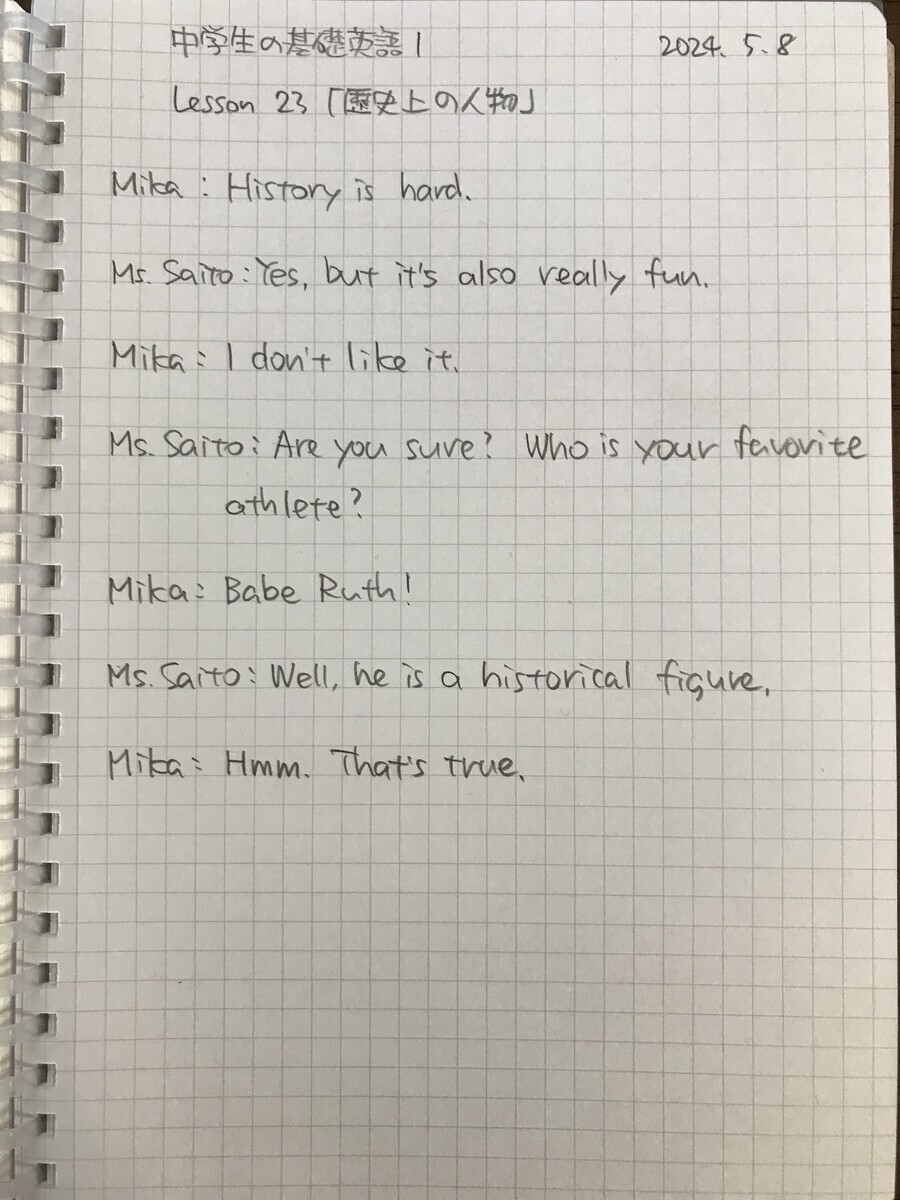 中学生の基礎英語1 2024.5.8
Lesson 23「歴史上の人物」
Mika: History is hard.
Ms. Saito: Yes, but it's also really fun.
Mika: I don't like it.
Ms. Saito: Are you sure? Who is your favorite
athlete?
Mika: Babe Ruth!
Ms. Saito: Well, he is a historical figure.
Mika: Hmm. That's true.